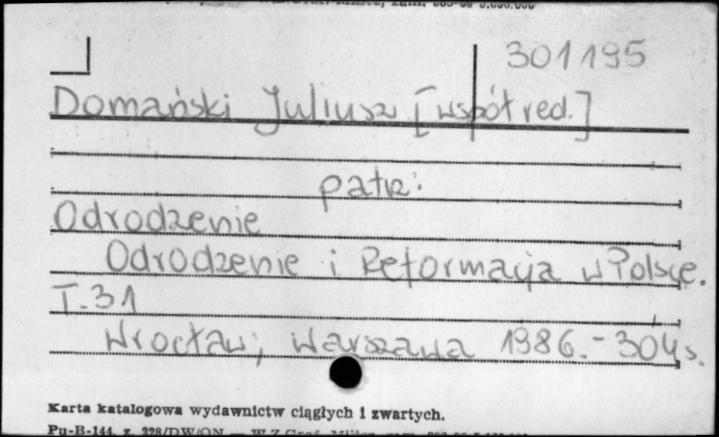 301195
Domański Juliusz [współred.]
patrz:
Odrodzenie
Odrodzenie i Reformacja w Polsce.
T.31
Wrocław; Warszawa 1986.- 304 s.
Karta katalogowa wydawnictw ciągłych i zwartych.
Pu-B-144, z. 328/DW/ON —